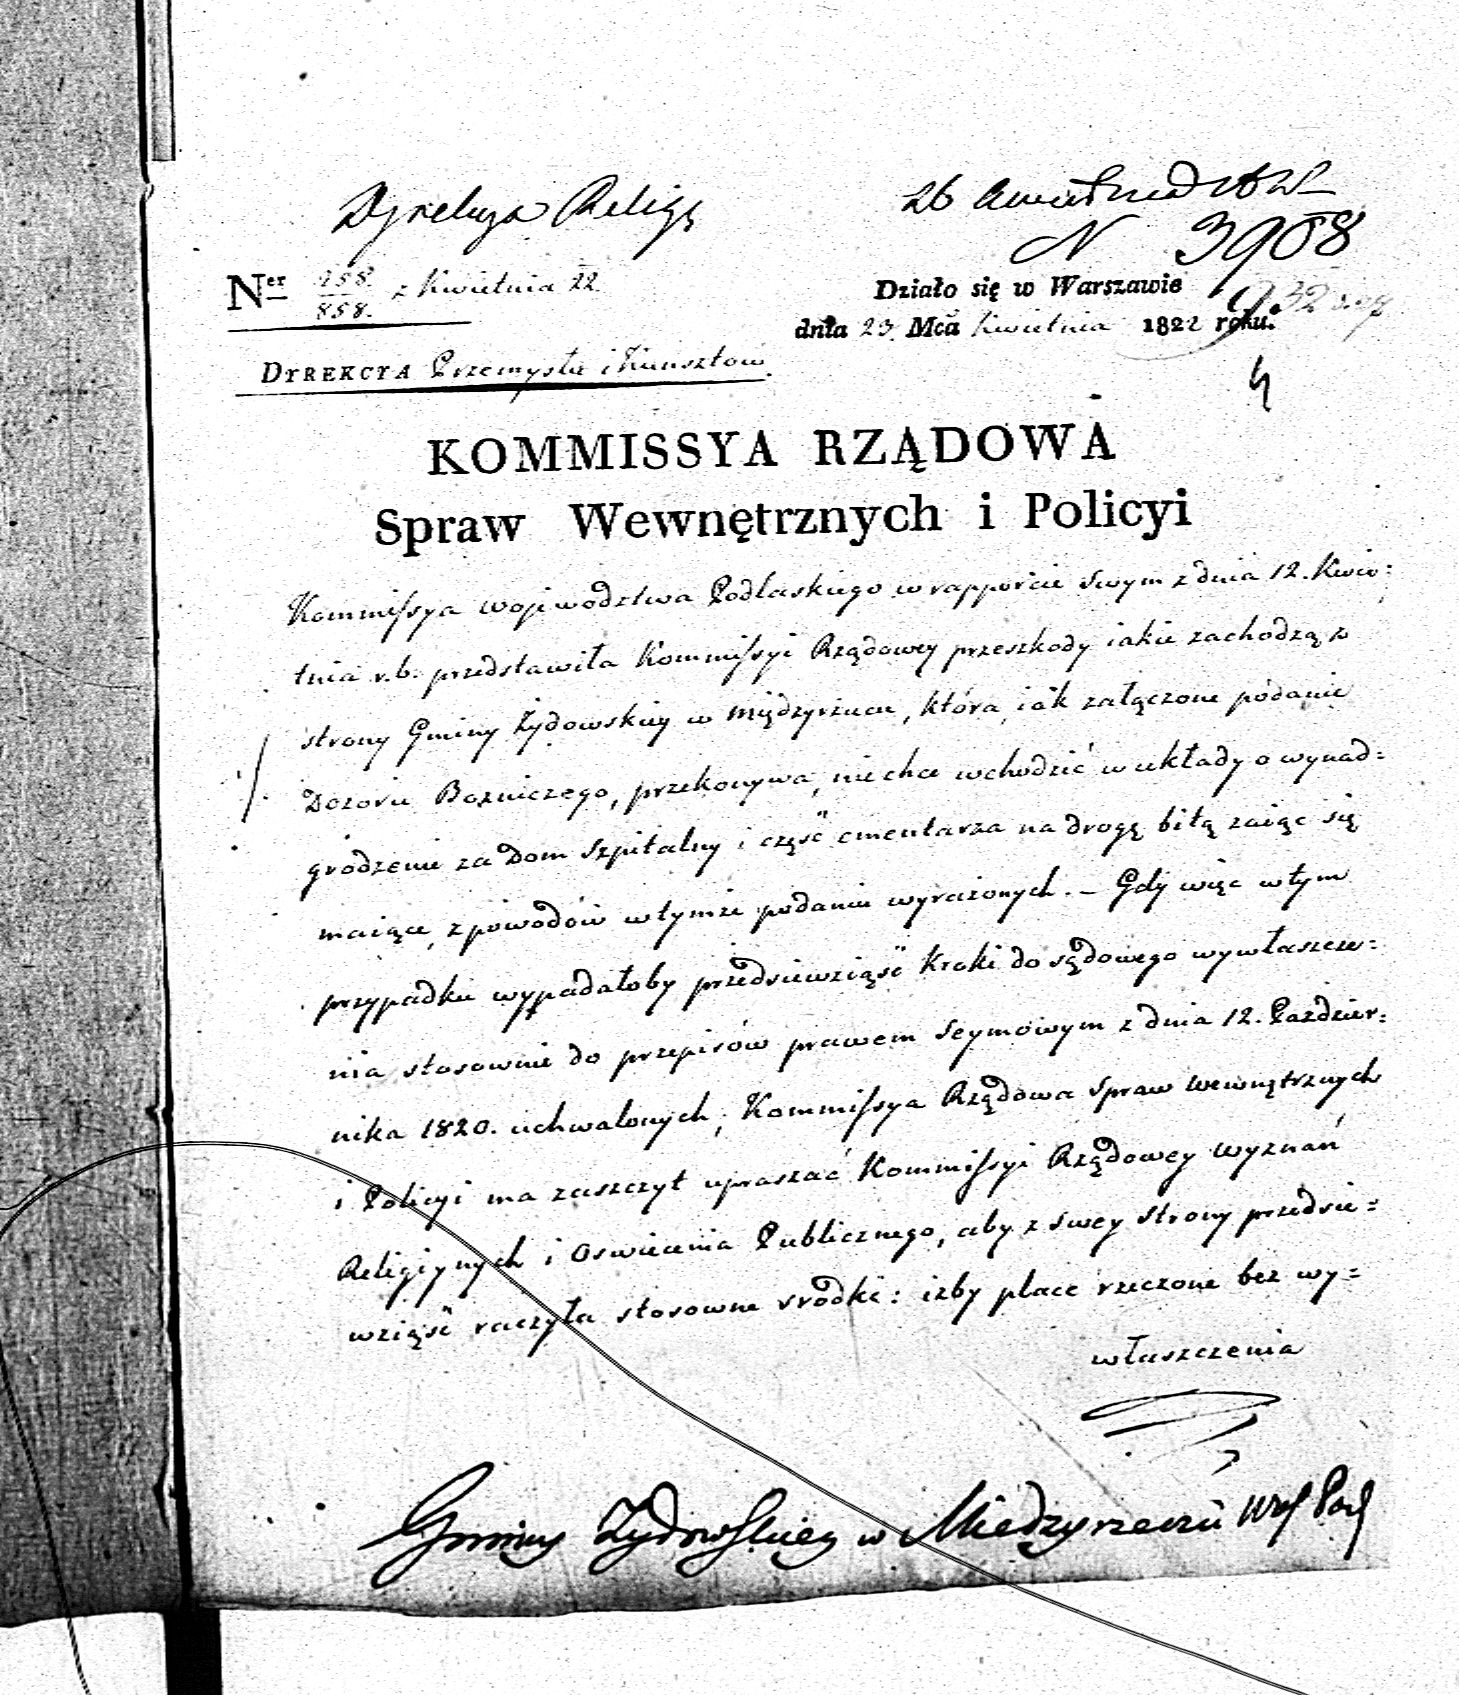 Dyrekcya Religi
26
N 3908
Ner 258. z Kwietnia 22
858.
Działo się w Warszawie
932
dnia 23. Mca Kwietnia 1822 roku.
DYREKCYA Przemysłu i Kunsztow.
4
KOMMISSYA RZĄDOWA
Spraw Wewnętrznych i Policyi
Kommissya Wojewodztwa Podlaskiego w rapporcie swym z dnia 12. Kwie:
tnia r.b. przedstawiła Kommissyi Rządowey przeszkody iakie zachodzą z
strony Gminy Żydowskiey w Międzyrzecu, która, iak załączone podanie
Dozoru Bozniczego, przekonywa, niechce wchodzić w układy o wynad=
grodzenie za Dom Szpitalny i część cmentarza na drogę bitą zaiąc się
maiące, z powodów w tymże podaniu wyrażonych. – Gdy więc w tym
przypadku wypadałoby przedsiewziąść kroki do sądowego wywłaszcze=
nia stosownie do przepisów prawem Seymowym z dnia 12. Paździer=
nika 1820. uchwalonych, Kommissya Rządowa Spraw Wewnętrznych
i Policyi ma zaszczyt upraszać Kommissyi Rządowey Wyznań
Religiynych i Oswiecenia Publicznego, aby z swey strony przedsie=
wziąść raczyła stosowne srodki: iżby place rzeczone bez wy=
właszczenia
Gminy Żydowskiey w Miedzyrzeczu Wof Pod